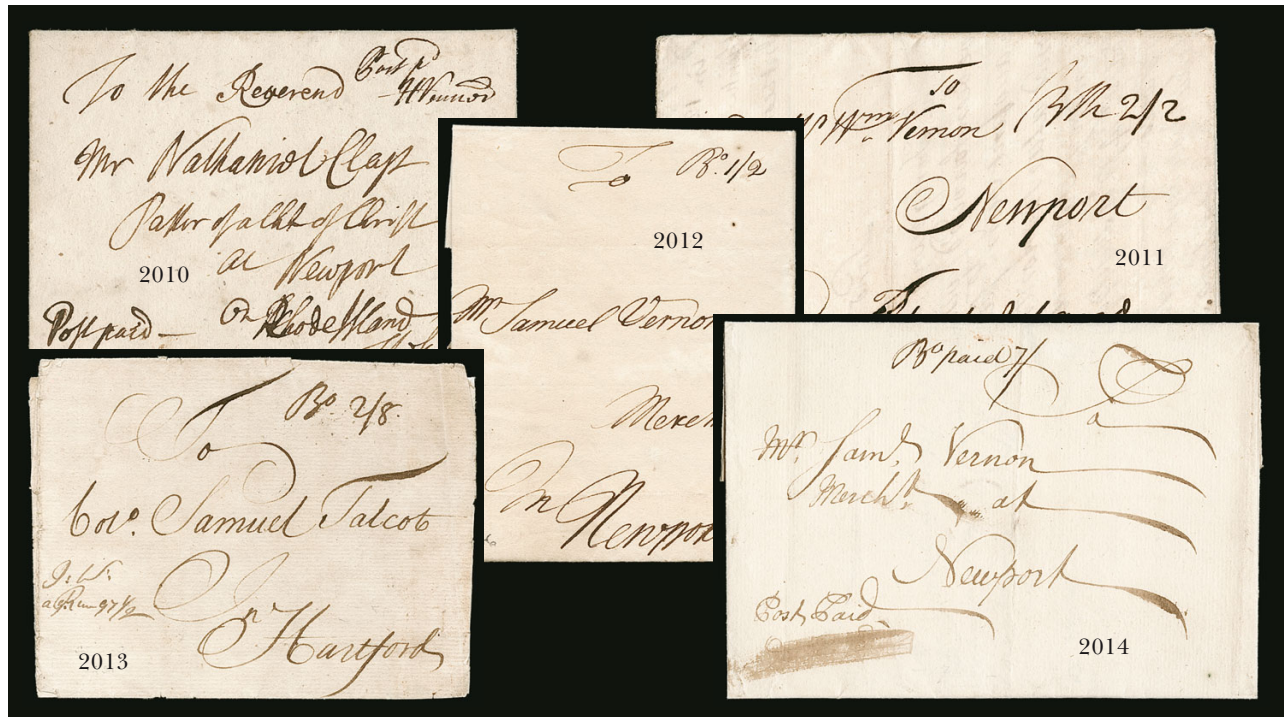 To the Reverend Post pd
Mr Nathaniel Clap
Pastor of a Chh of Christ
at Newport
on Rhode Island
Post paid
2010
To
Wm. Vernon 2/2
Newport
2011
To Bo. 1/2
2012
Mr. Samuel Vernon
Merch
In Newpor
To Bo. 2/8
Colo. Samuel Talcott
In
Hartford
2013
Bo. paid 7/
To
Mr. Saml. Vernon
Mercht. at
Newport
Post Paid
2014